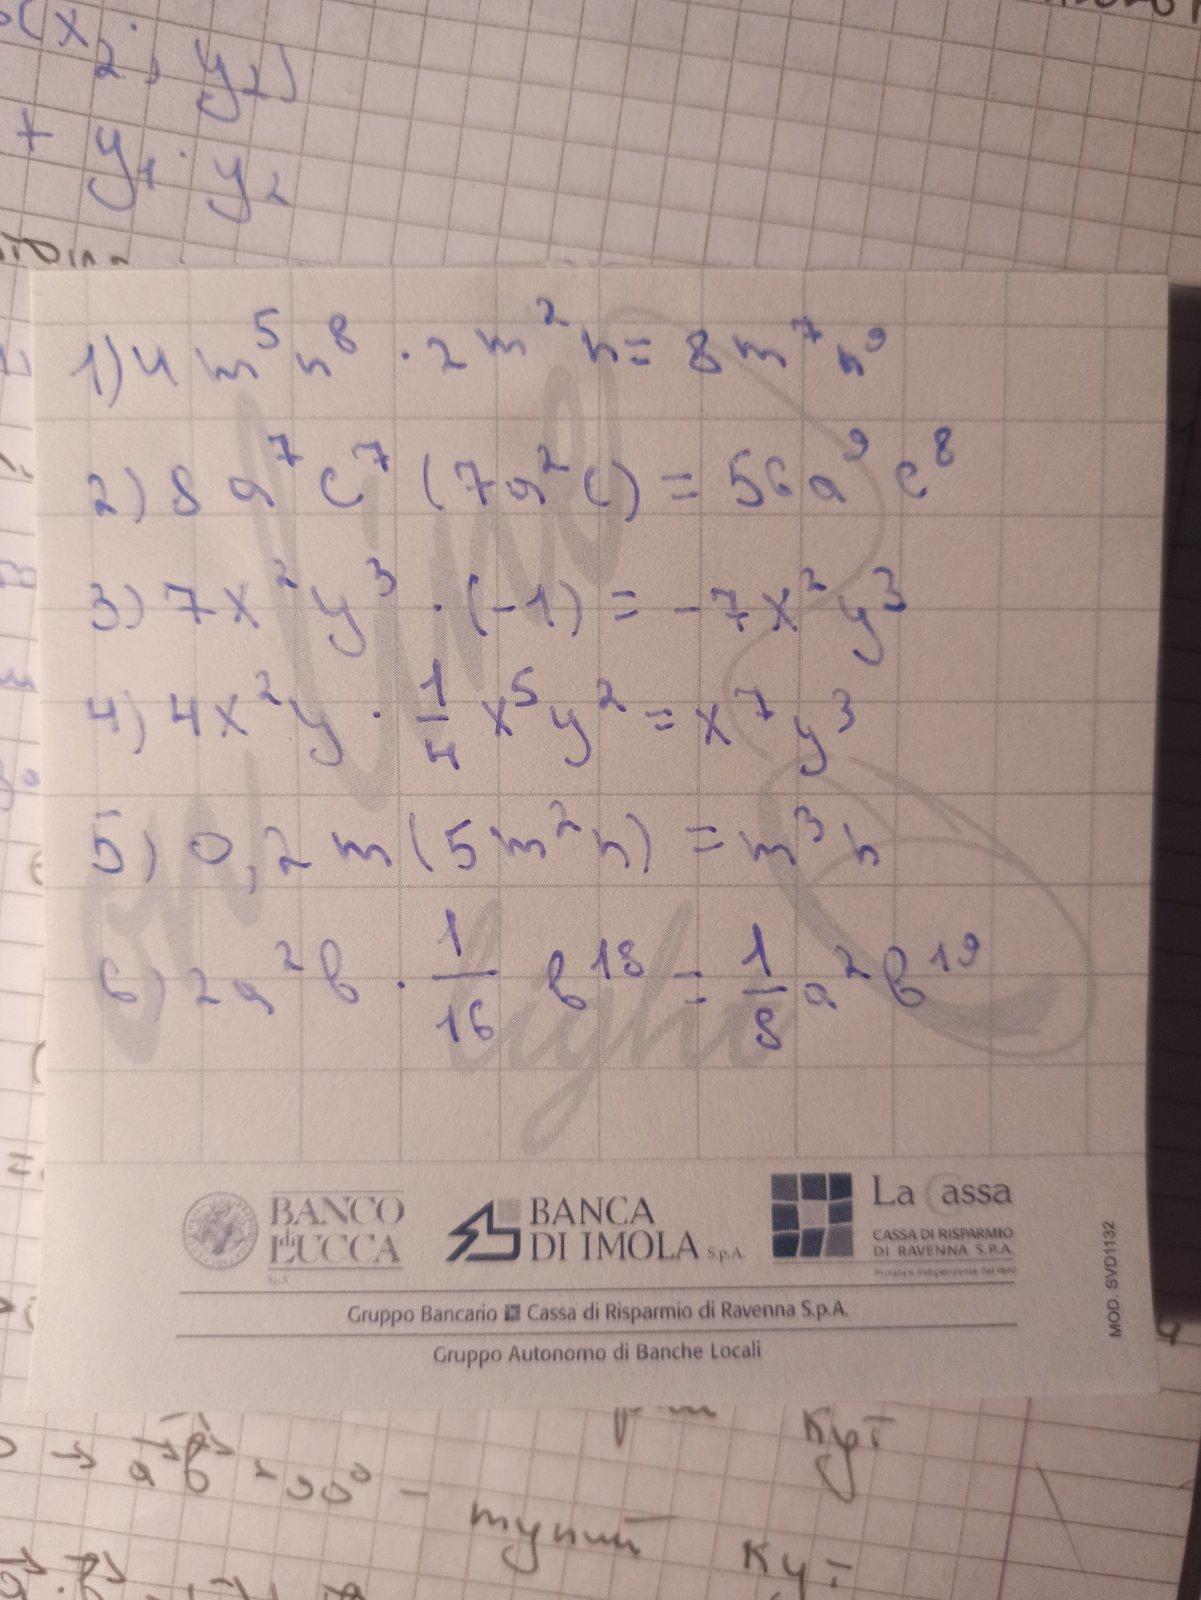 x₂; y₂)
+ y₁ · y₂
1) 4 m⁵n⁸ · 2m²n = 8m⁷n⁹
2) 8 a⁷c⁷ (7a²c) = 56a⁹c⁸
3) 7x²y³ · (-1) = -7x²y³
4) 4x²y · 1/4 x⁵y² = x⁷y³
5) 0,2m(5m²n) = m³n
6) 2a²b · 1/16 b¹⁸ = 1/8 a²b¹⁹
on line
light
BANCO di LUCCA
S.p.A.
BANCA DI IMOLA S.p.A.
La Cassa
CASSA DI RISPARMIO
DI RAVENNA S.P.A.
Privata e Indipendente dal 1840
Gruppo Bancario Cassa di Risparmio di Ravenna S.p.A.
Gruppo Autonomo di Banche Locali
MOD. SVD1132
кут
тупий кут